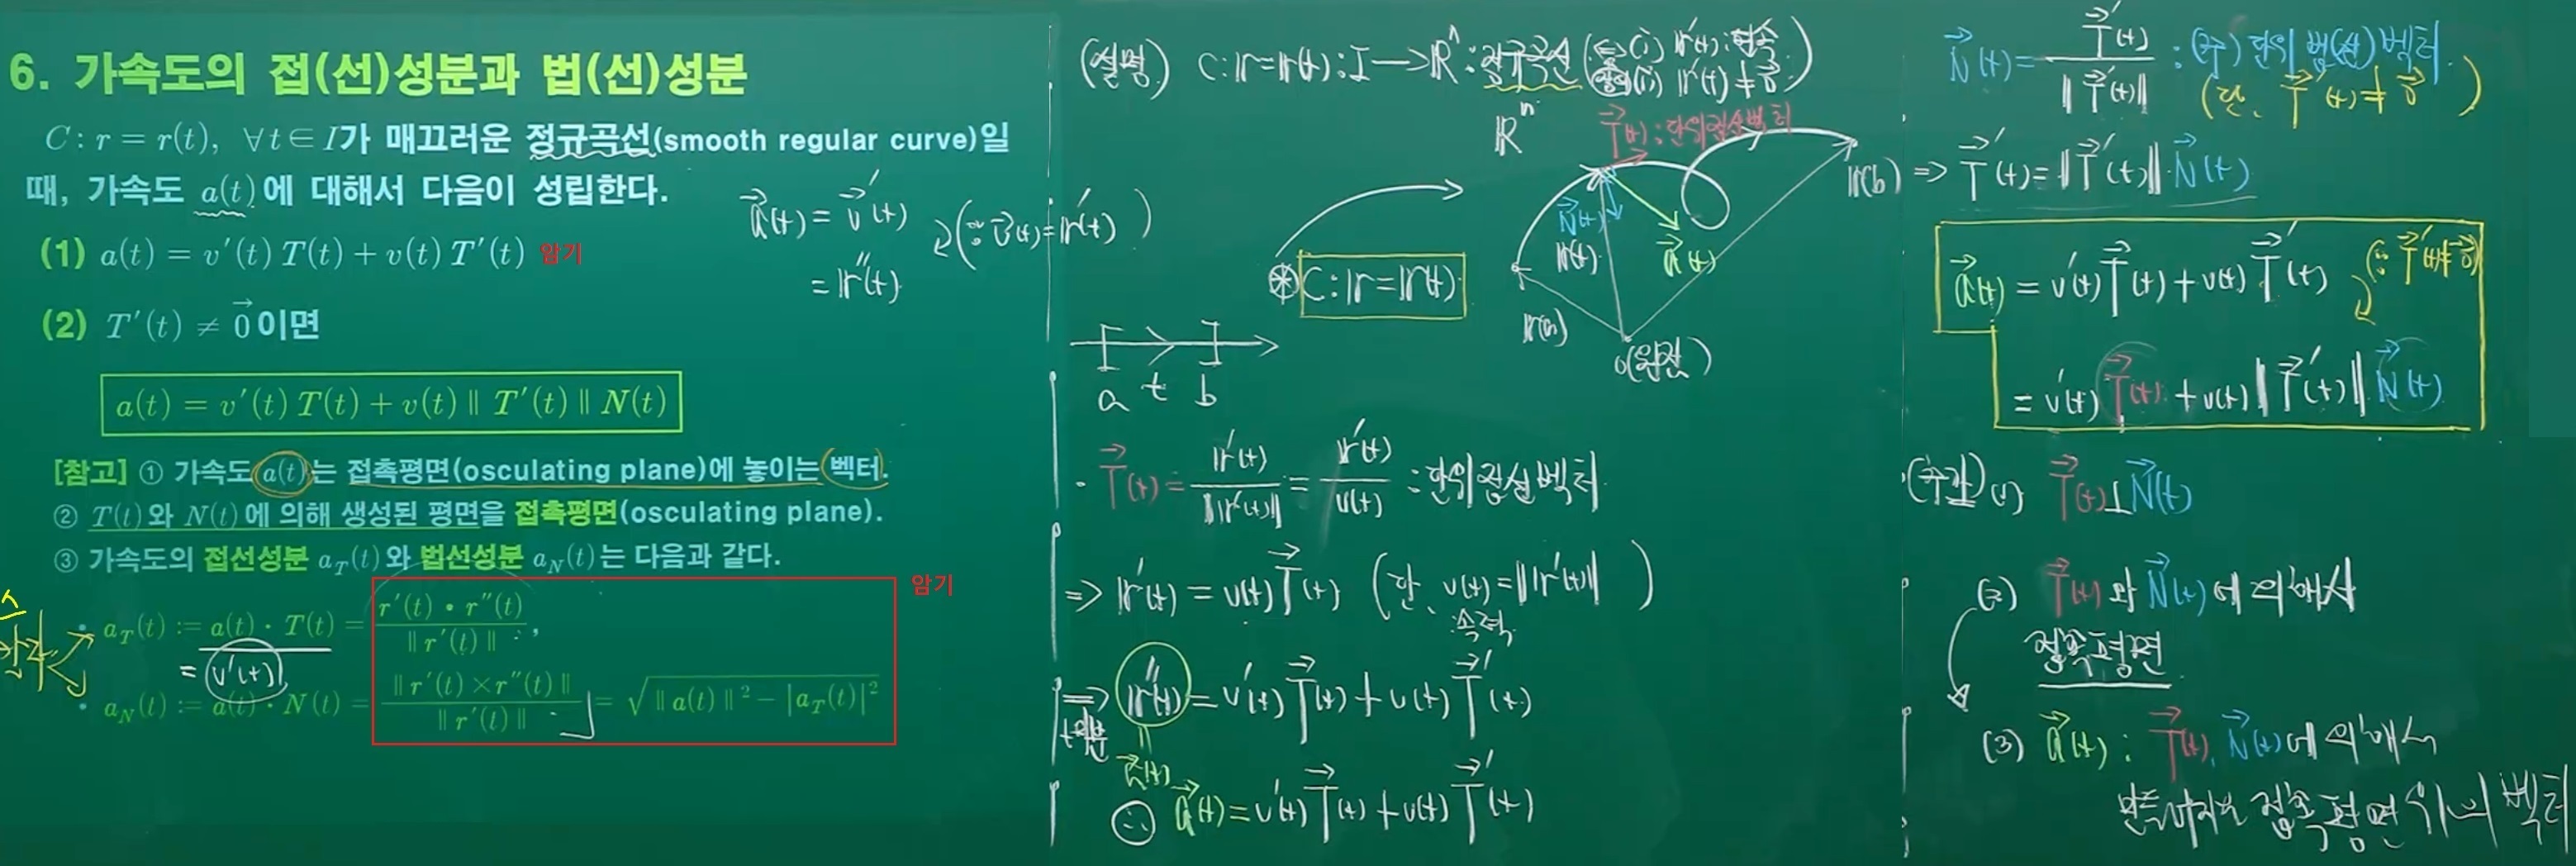 6. 가속도의 접(선)성분과 법(선)성분
C : r = r(t), ∀t∈I가 매끄러운 정규곡선(smooth regular curve)일
때, 가속도 a(t)에 대해서 다음이 성립한다.
a⃗(t) = v⃗′(t) (∵ v⃗(t) = r′(t))
= r″(t)
(1) a(t) = v′(t) T(t) + v(t) T′(t) 암기
(2) T′(t) ≠ 0⃗이면
a(t) = v′(t) T(t) + v(t) ‖ T′(t) ‖ N(t)
[참고] ① 가속도 a(t)는 접촉평면(osculating plane)에 놓이는 벡터.
② T(t)와 N(t)에 의해 생성된 평면을 접촉평면(osculating plane).
③ 가속도의 접선성분 a_T(t)와 법선성분 a_N(t)는 다음과 같다.
암기
• a_T(t) := a(t) · T(t) = r′(t) • r″(t) / ‖ r′(t) ‖ ,
= v′(t)
• a_N(t) := a(t) · N(t) = ‖ r′(t) × r″(t) ‖ / ‖ r′(t) ‖ = √(‖ a(t) ‖² − |a_T(t)|²)
(설명) C : r = r(t) : I → Rⁿ : 정규곡선 (⇔ (i) r′(t) : 연속
정의 (ii) r′(t) ≠ 0⃗)
Rⁿ
T⃗(t) : 단위접선벡터
r(b)
N⃗(t)
r(t)
a⃗(t)
⊛ C : r = r(t)
r(a)
o(원점)
a t b
· T⃗(t) = r′(t) / ‖r′(t)‖ = r′(t) / v(t) : 단위접선벡터
⇒ r′(t) = v(t) T⃗(t) (단, v(t) = ‖r′(t)‖)
속력
⇒ r″(t) = v′(t) T⃗(t) + v(t) T⃗′(t)
t미분
a⃗(t)
∴ a⃗(t) = v′(t) T⃗(t) + v(t) T⃗′(t)
N⃗(t) = T⃗′(t) / ‖T⃗′(t)‖ : (주) 단위 법(선)벡터
(단, T⃗′(t) ≠ 0⃗)
⇒ T⃗′(t) = ‖T⃗′(t)‖ N⃗(t)
a⃗(t) = v′(t) T⃗(t) + v(t) T⃗′(t) (∵ T⃗′(t) ≠ 0⃗)
= v′(t) T⃗(t) + v(t) ‖T⃗′(t)‖ N⃗(t)
(1) T⃗(t) ⊥ N⃗(t)
(2) T⃗(t) 와 N⃗(t) 에 의해서
접촉평면
(3) a⃗(t) : T⃗(t), N⃗(t) 에 의해서
만들어지는 접촉평면 위의 벡터